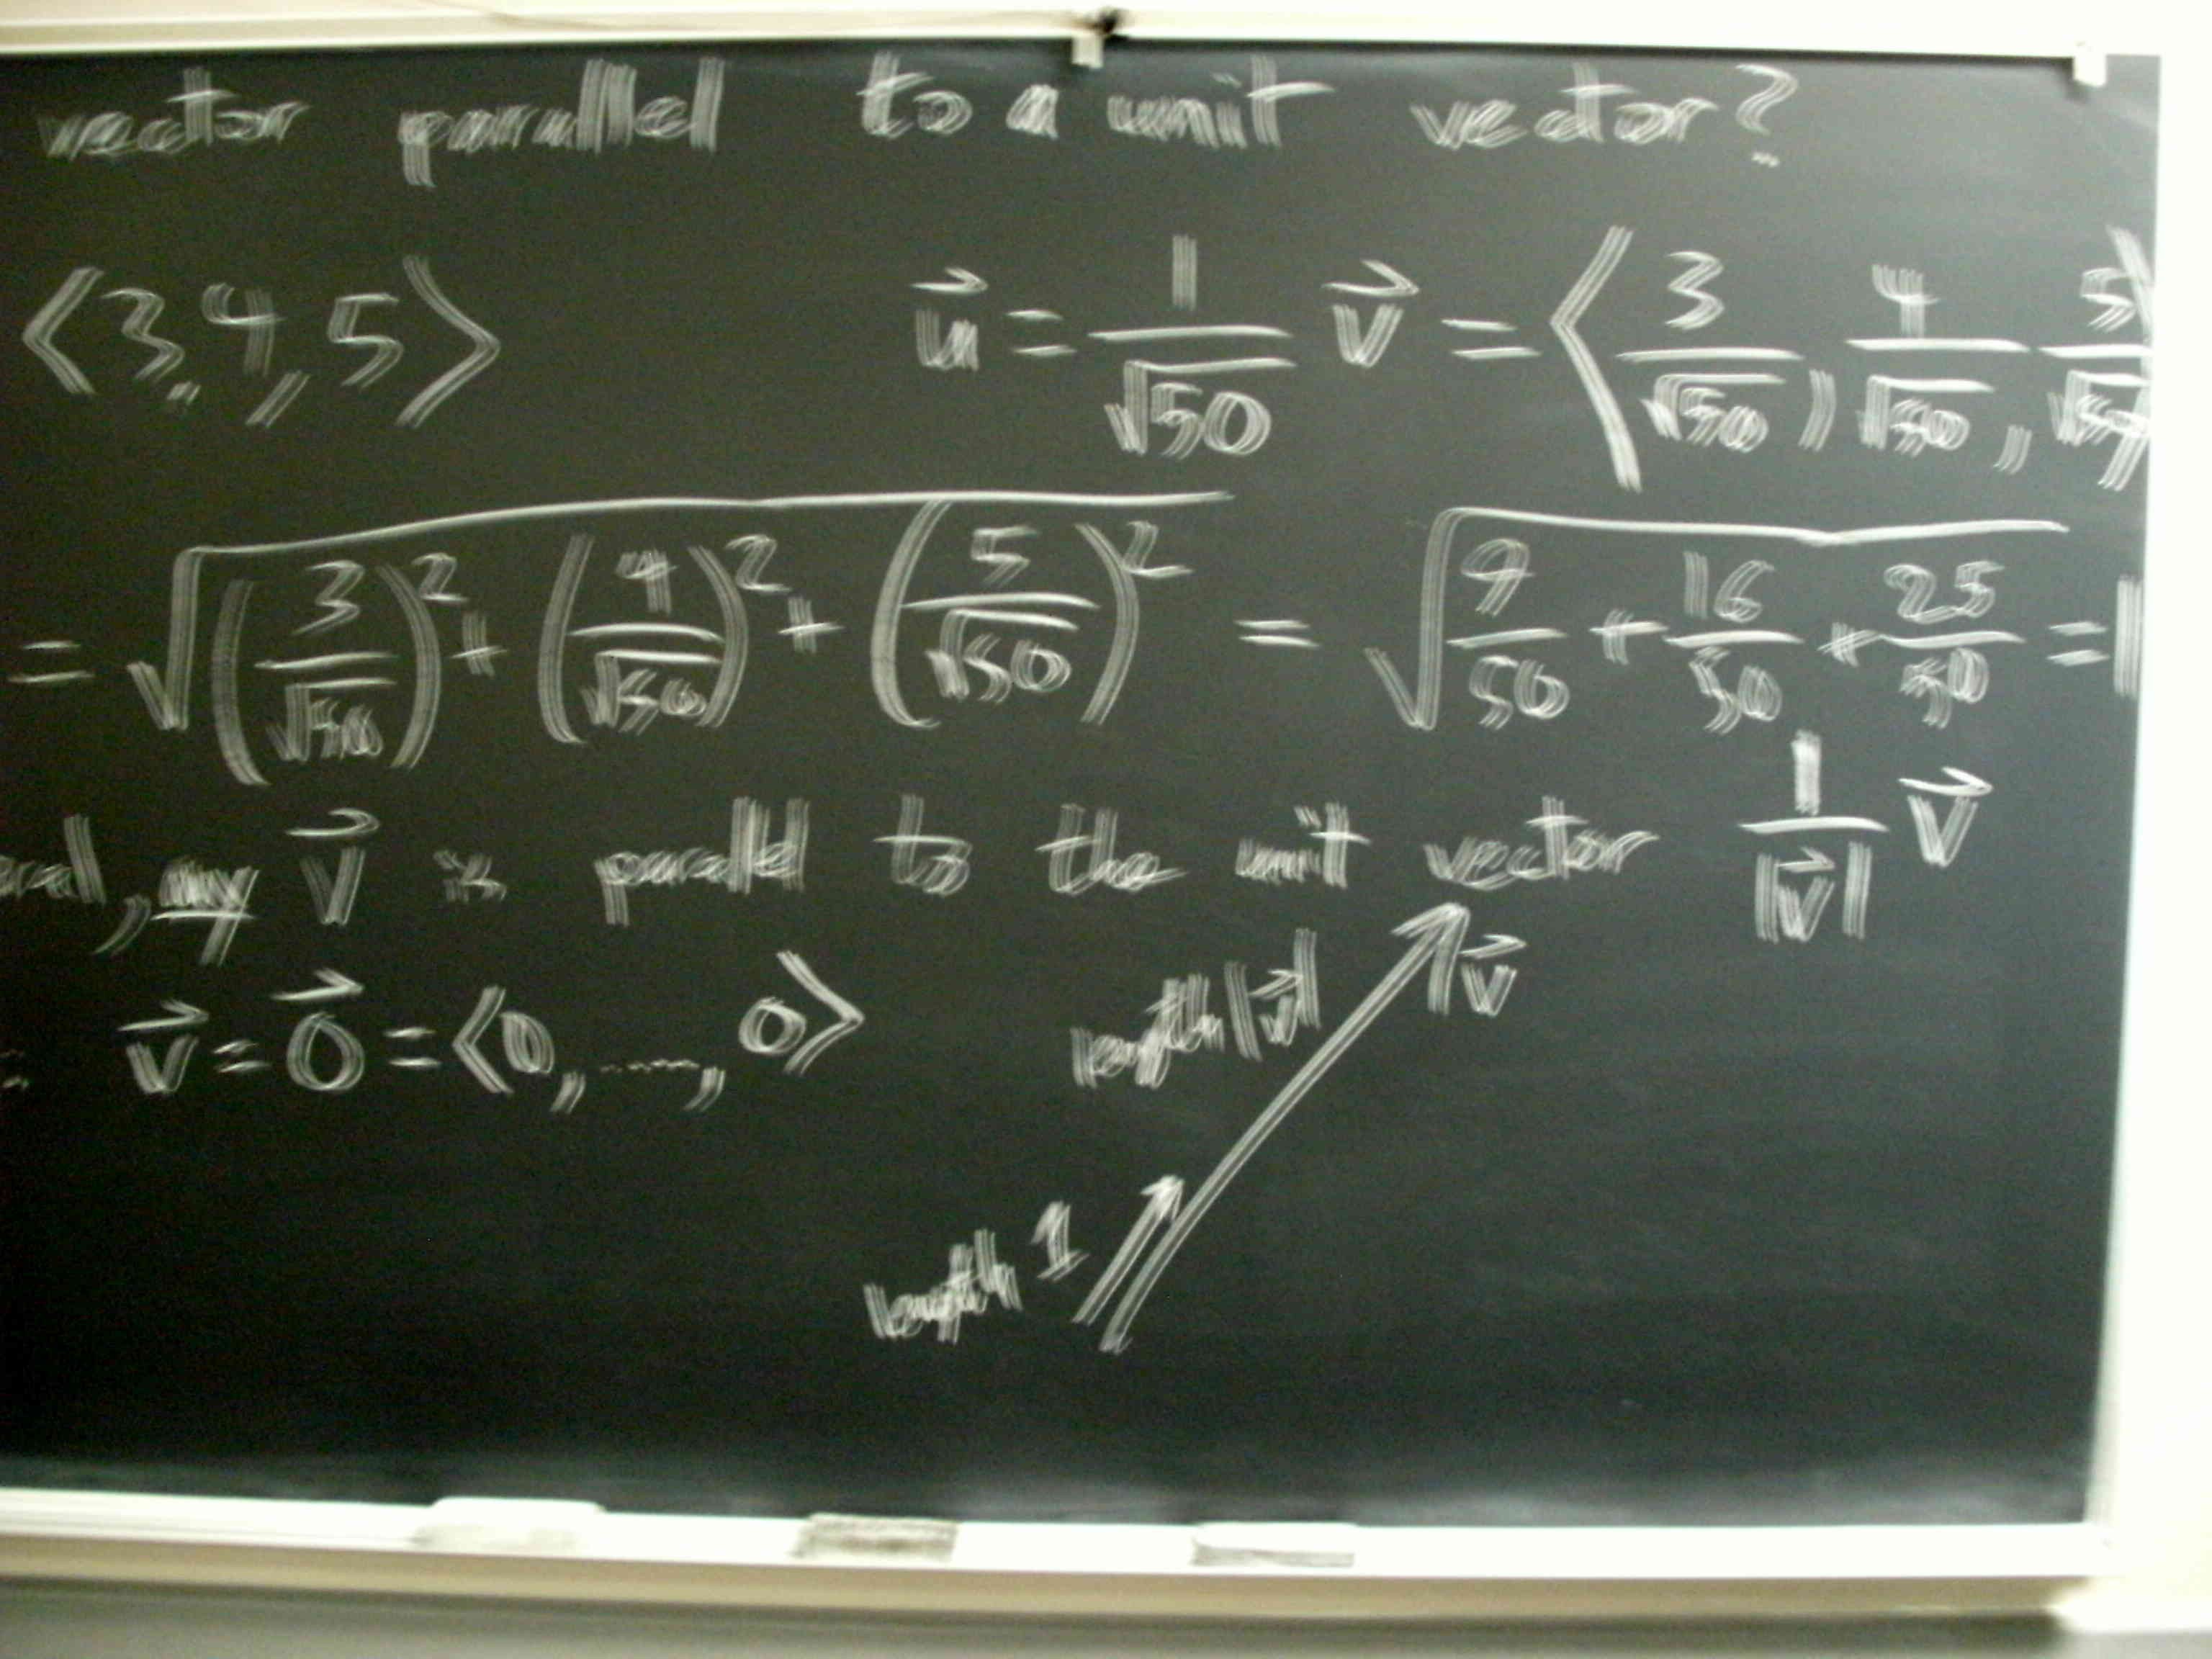 vector parallel to a unit vector?
⟨3, 4, 5⟩ u⃗ = 1/√50 v⃗ = ⟨3/√50, 4/√50, 5/√50⟩
= √((3/√50)² + (4/√50)² + (5/√50)²) = √(9/50 + 16/50 + 25/50) = 1
eral, any v⃗ is parallel to the unit vector 1/|v⃗| v⃗
: v⃗ = 0⃗ = ⟨0, ...., 0⟩
length |v⃗| v⃗
length 1